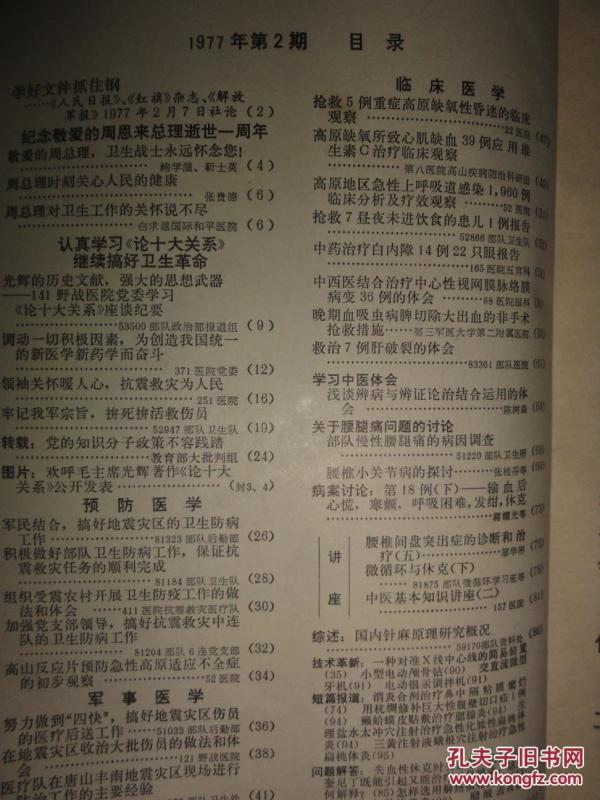 1977年第2期 目录
学好文件抓住钢
——《人民日报》、《红旗》杂志、《解放
军报》1977年2月7日社论(2)
纪念敬爱的周恩来总理逝世一周年
敬爱的周总理,卫生战士永远怀念您!
鲍学温、靳士英(4)
周总理时刻关心人民的健康
张贵德(6)
周总理对卫生工作的关怀说不尽
白求恩国际和平医院(6)
认真学习《论十大关系》
继续搞好卫生革命
光辉的历史文献,强大的思想武器
——141野战医院党委学习
《论十大关系》座谈纪要
53500部队政治部报道组(9)
调动一切积极因素,为创造我国统一
的新医学新药学而奋斗
371医院党委(12)
领袖关怀暖人心,抗震救灾为人民
251医院(16)
牢记我军宗旨,拚死拚活救伤员
52947部队卫生队(19)
转载:党的知识分子政策不容践踏
教育部大批判组(24)
图片:欢呼毛主席光辉著作《论十大
关系》公开发表(封3、4)
预防医学
军民结合,搞好地震灾区的卫生防病
工作 81323部队后勤部(26)
积极做好部队卫生防病工作,保证抗
震救灾任务的顺利完成
81184部队卫生队(28)
组织受震农村开展卫生防疫工作的做
法和体会 411医院抗震救灾医疗队(30)
加强党支部领导,搞好抗震救灾中连
队的卫生防病工作
81204部队6连党支部(32)
高山反应片预防急性高原适应不全症
的初步观察 52医院(34)
军事医学
努力做到“四快”,搞好地震灾区伤员
的医疗后送工作 51033部队后勤部(36)
在地震灾区收治大批伤员的做法和体
会 121野战医院(38)
医疗队在唐山丰南地震灾区现场进行
防治工作的主要经验(41)
临床医学
抢救5例重症高原缺氧性昏迷的临床
观察 22医院(47)
高原缺氧所致心肌缺血39例应用维
生素C治疗临床观察
第八医院高山疾病防治科研组
高原地区急性上呼吸道感染1,960例
临床分析及疗效观察 52医院(51)
抢救7昼夜未进饮食的患儿1例报告
52866部队卫生队
中药治疗白内障14例22只眼报告
165医院五官科
中西医结合治疗中心性视网膜脉络膜
病变36例的体会 88医院眼科
晚期血吸虫病脾切除大出血的非手术
抢救措施 第三军医大学第二附属医院
救治7例肝破裂的体会
83361部队医院(61)
学习中医体会
浅谈辨病与辨证论治结合运用的体
会 陈树森(64)
关于腰腿痛问题的讨论
部队慢性腰腿痛的病因调查
51220部队卫生所(68)
腰椎小关节病的探讨 张桂芬等(69)
病案讨论:第18例(下)——输血后
心慌,寒颤,呼吸困难,发绀,休克
蒋耀光等(73)
讲座
腰椎间盘突出症的诊断和治
疗(五) 邹华彬(75)
微循环与休克(下)
81875部队微循环学习班等(78)
中医基本知识讲座(二)
157医院(81)
综述:国内针麻原理研究概况
59170部队资料处(86)
技术革新:一种对准X线中心线的简易装置
(35) 小型电动颅骨钻(90) 交直流微型
牙机(91) 电动银汞调拌机(91)
短篇报道:消炎合剂治疗鼻中隔粘膜糜烂
(74) 用梳绸修补巨大性腹壁切口疝1例
(94) 癞蛤蟆皮贴敷治疗腮腺炎(94) 生
理盐水太冲穴注射治疗急性化脓性扁桃体
炎(94) 三黄注射液峨根穴注射治疗急性
扁桃体炎(95)
问题解答:失血性休克时
奎尼丁既能引起又能治疗
何解释?(85) 怎样选用解热